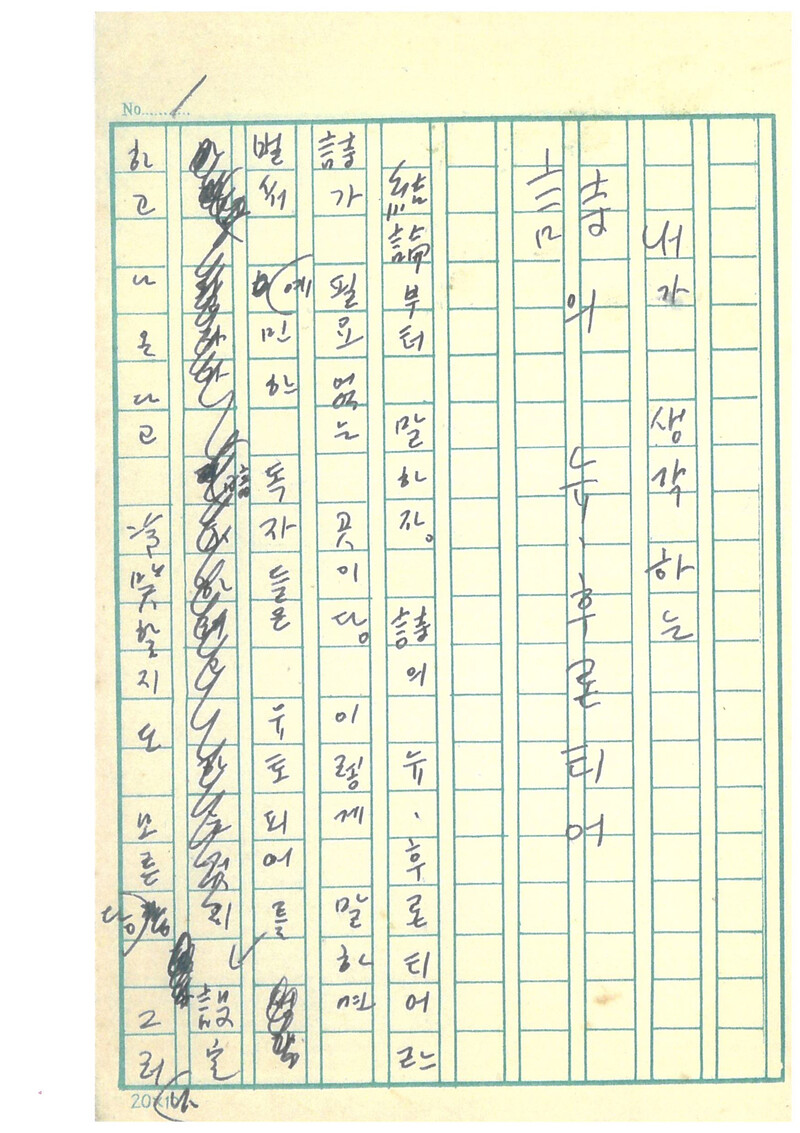 No. 1
내가 생각하는
詩의 뉴·후론티어
結論부터 말하자. 詩의 뉴·후론티어란
詩가 필요없는 곳이다. 이렇게 말하면
벌써 예민한 독자들은 유토피어를
設定
하고 나온다고 할지도 모른다. 그러나
20×10